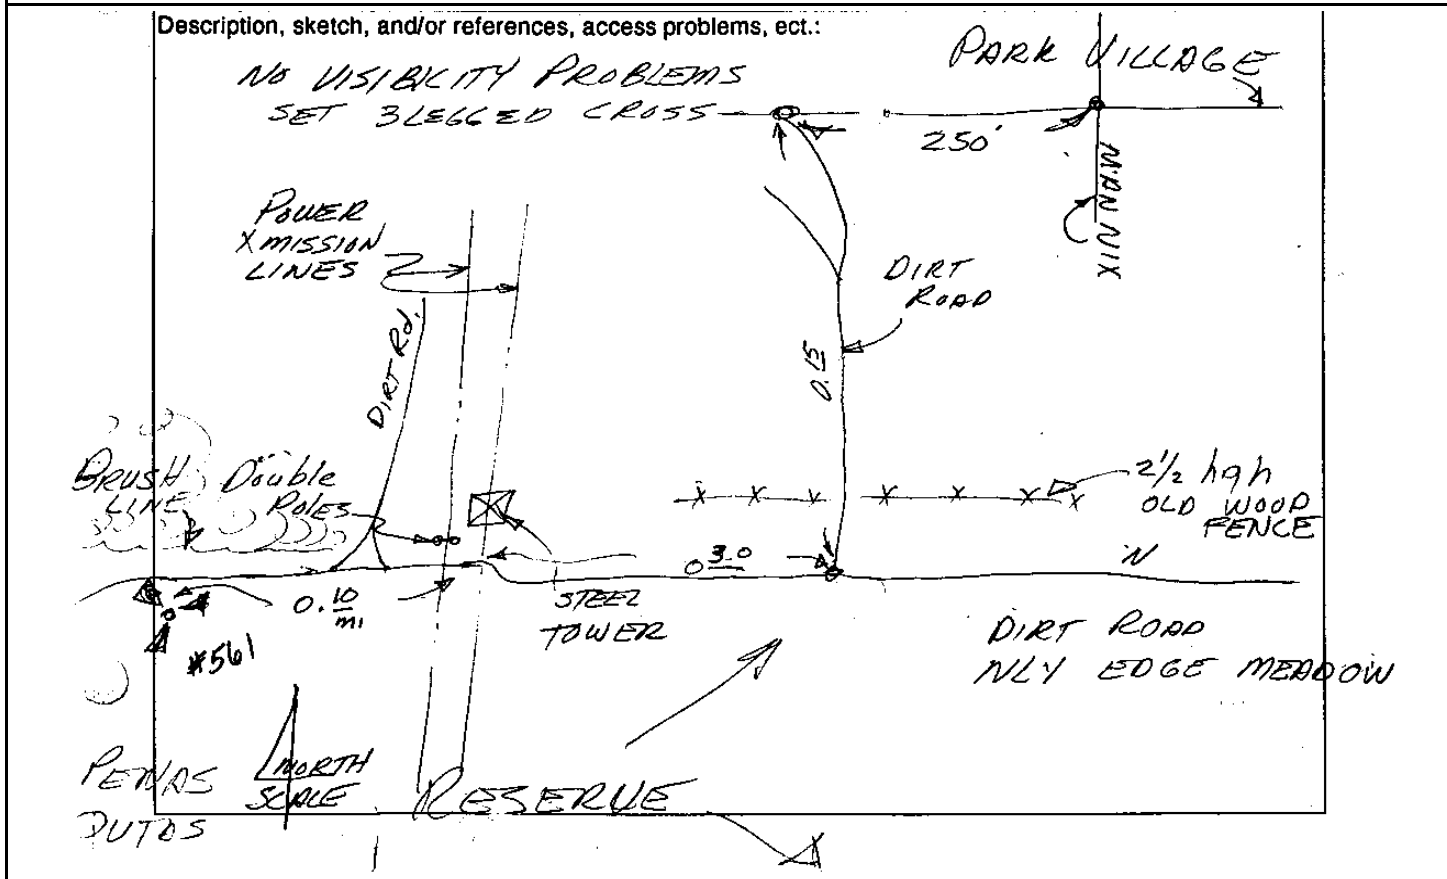 Description, sketch, and/or references, access problems, ect.:
NO VISIBILITY PROBLEMS
SET 3 LEGGED CROSS
PARK VILLAGE
250'
MANNIX
POWER
X MISSION
LINES
DIRT
ROAD
DIRT Rd.
0.15
BRUSH
LINE
Double
POLES
2 1/2 hgh
OLD WOOD
FENCE
0.10
mi
0 30
STEEL
TOWER
#561
DIRT ROAD
NLY EDGE MEADOW
NORTH
SCALE
PENAS
RESERVE